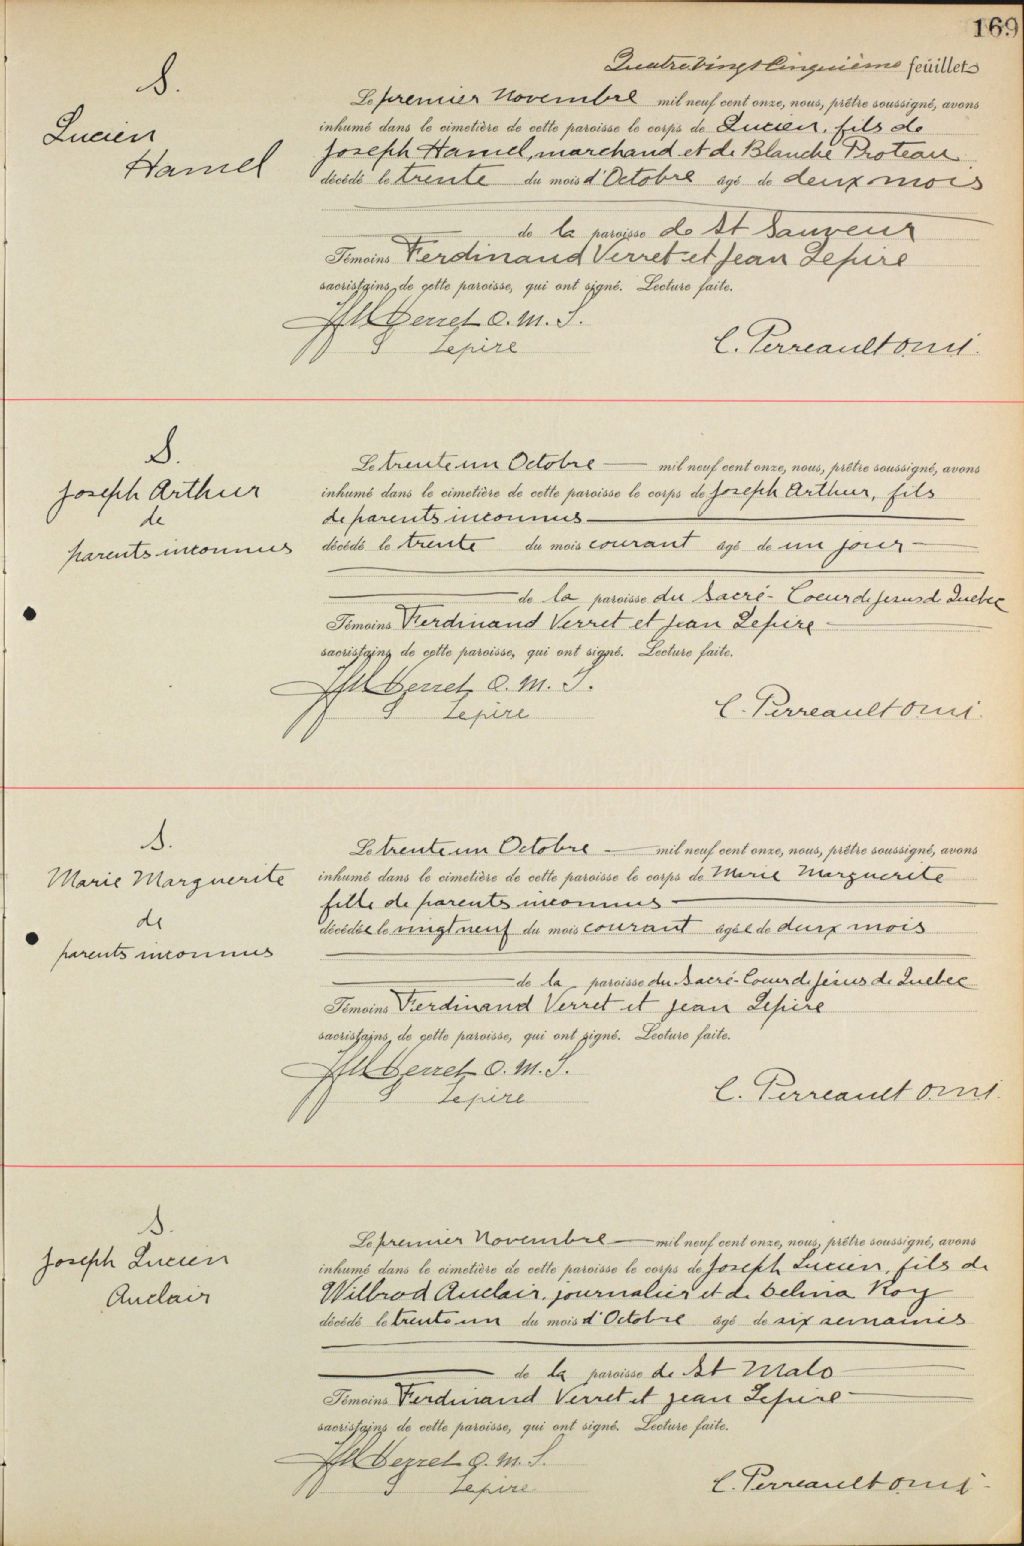 169
Quatre vingt cinquième feuillet
S.
Lucien
Hamel
Le premier Novembre mil neuf cent onze, nous, prêtre soussigné, avons
inhumé dans le cimetière de cette paroisse le corps de Lucien, fils de
Joseph Hamel, marchand et de Blanche Proteau
décédé le trente du mois d'Octobre âgé de deux mois
de la paroisse de St Sauveur
Témoins Ferdinand Verret et Jean Lepire
sacristains de cette paroisse, qui ont signé. Lecture faite.
Verret O. M. S.
Lepire
C. Perreault o.m.i.
S.
Joseph Arthur
de
parents inconnus
Le trente un Octobre — mil neuf cent onze, nous, prêtre soussigné, avons
inhumé dans le cimetière de cette paroisse le corps de Joseph Arthur, fils
de parents inconnus —
décédé le trente du mois courant âgé de un jour —
de la paroisse du Sacré-Coeur de Jesus de Quebec
Témoins Ferdinand Verret et Jean Lepire —
sacristains de cette paroisse, qui ont signé. Lecture faite.
Verret O. M. S.
Lepire
C. Perreault o.m.i.
S.
Marie Marguerite
de
parents inconnus
Le trente un Octobre — mil neuf cent onze, nous, prêtre soussigné, avons
inhumé dans le cimetière de cette paroisse le corps de Marie Marguerite
fille de parents inconnus —
décédée le vingt neuf du mois courant âgée de deux mois
de la paroisse du Sacré-Coeur de Jésus de Quebec
Témoins Ferdinand Verret et Jean Lepire
sacristains de cette paroisse, qui ont signé. Lecture faite.
Verret O. M. S.
Lepire
C. Perreault o.m.i.
S.
Joseph Lucien
Auclair
Le premier Novembre — mil neuf cent onze, nous, prêtre soussigné, avons
inhumé dans le cimetière de cette paroisse le corps de Joseph Lucien, fils de
Wilbrod Auclair, journalier et de Delina Roy
décédé le trente un du mois d'Octobre âgé de six semaines
de la paroisse de St Malo
Témoins Ferdinand Verret et Jean Lepire —
sacristains de cette paroisse, qui ont signé. Lecture faite.
Verret O. M. S.
Lepire
C. Perreault o.m.i.